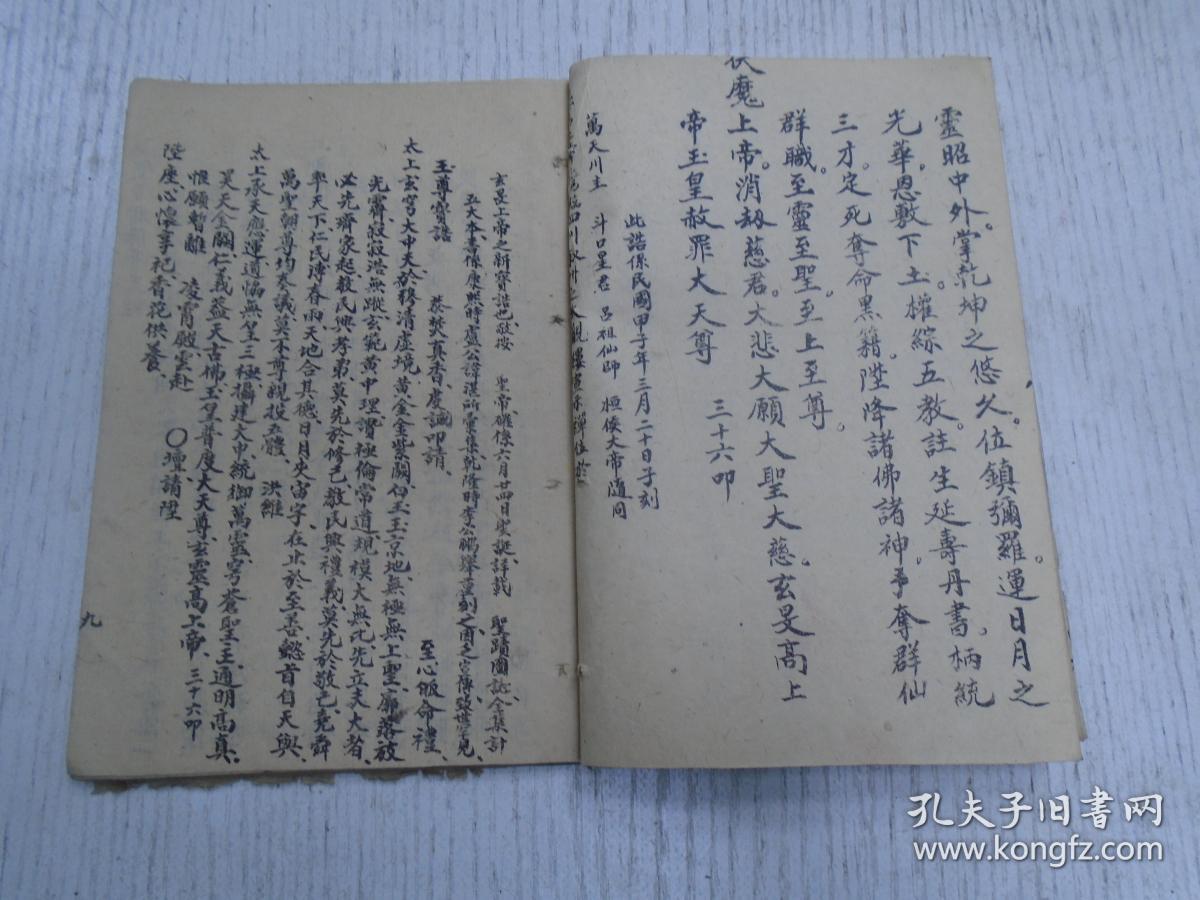 靈昭中外。掌乾坤之悠久。位鎮彌羅。運日月之
光華。恩敷下土。權綜五教。註生延壽丹書。柄統
三才。定死奪命黑籍。陞降諸佛諸神。予奪群仙
群職。至靈至聖。至上至尊。
伏魔上帝。消劫慈君。大悲大願大聖大慈。玄旻高上
帝玉皇赦罪大天尊 三十六叩
此誥係民國甲子年三月二十日子刻
萬天川主 斗口星君 呂祖仙師 桓侯大帝 隨同
玄旻上帝之新寶誥也、敬按 聖帝確係六月廿四日聖誕、詳載 聖蹟圖誌全集計
五大本書係康熙時盧公諱湛所彙集、乾隆時李公
玉尊寶誥 恭焚真香、虔誠叩請、 至心皈命禮、
太上玄穹大中天於穆清虛境、黃金金紫闕、白玉玉京地、無極無上聖、廓落被
光霄、寂寂浩無蹤、玄範黃中理、贊極倫常道、規模大無比、先立天大者、
必先齊家起、教民興孝弟、莫先於修己、教民興禮義、莫先於敬己、堯舜
率天下仁、民溥春雨、天地合其德、日月更宙宇、在止於至善、懿旨自天興、
萬聖朝尊、均奏議、莫不尊親、投五體、 洪維
太上承天應運道協無皇三極攝建大中統御萬靈、穹蒼聖王、通明高真、
昊天金闕仁義蓋天古佛玉皇普度大天尊、玄靈高上帝、三十六叩
惟願暫離 凌霄殿雲赴 〇壇、請陞
陞座心惶、享祀香花供養、
九
孔夫子旧书网
www.kongfz.com